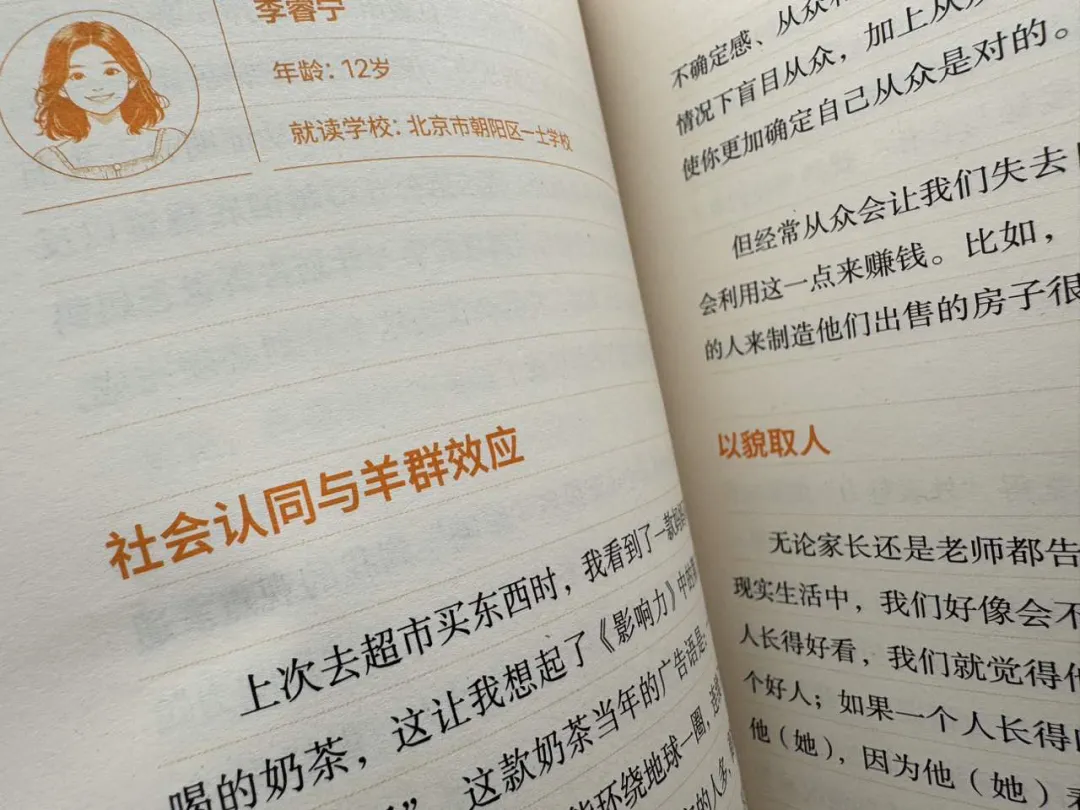 李睿宁
年龄：12岁
就读学校：北京市朝阳区一土学校
社会认同与羊群效应
上次去超市买东西时，我看到了一款妈妈
喝的奶茶，这让我想起了《影响力》中的
”，这款奶茶当年的广告语是：
能环绕地球一圈，连续
的人多，
不确定感、从众
情况下盲目从众，加上从众
使你更加确定自己从众是对的。
但经常从众会让我们失去
会利用这一点来赚钱。比如，
的人来制造他们出售的房子很
以貌取人
无论家长还是老师都告
现实生活中，我们好像会不
人长得好看，我们就觉得他
个好人；如果一个人长得
他（她），因为他（她）